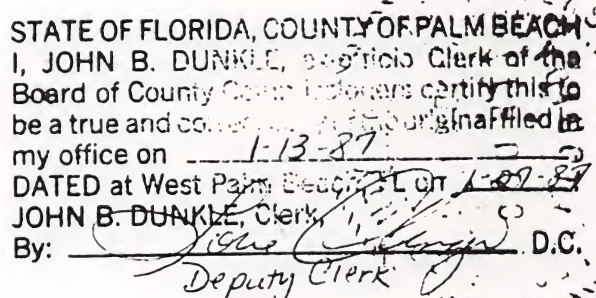 STATE OF FLORIDA, COUNTY OF PALM BEACH
I, JOHN B. DUNKLE, Clerk of the
Board of County certify this to
be a true and original filed in
my office on 1-13-87
DATED at West Palm Beach, FL on
JOHN B. DUNKLE, Clerk,
By: D.C.
Deputy Clerk